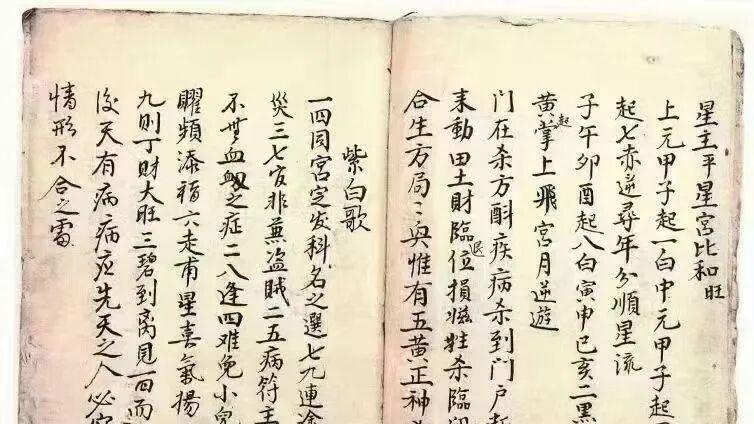 星主平星宮比和旺
上元甲子起一白中元甲子起
起七赤逆尋年分順星流
子午卯酉起八白寅申巳亥二黑
黃起掌上飛宮月逆遊
門在杀方酙疾病杀到門户
耒動田土財臨退位損牲杀臨
合生方局〻惟有五黄正神
紫白歌
一四同宮定发科名之選七九連途
災三七官非兼盗賊二五病符主
不無血之症二八逢四难免小兒
耀頻添福六走甫星喜氣揚
九則丁財大旺三碧到离見一四而
後天有病病应先天之人必
情形不合之處